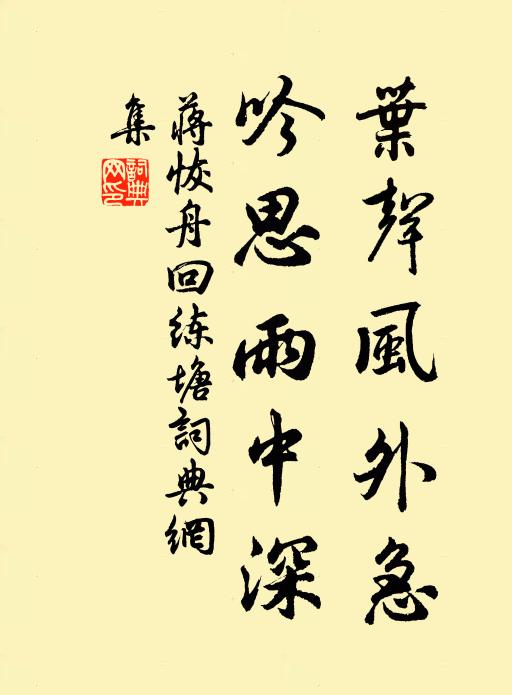 葉聲風外急
吟思雨中深
蔣恢舟回練塘詞典網
集
詞典
网印